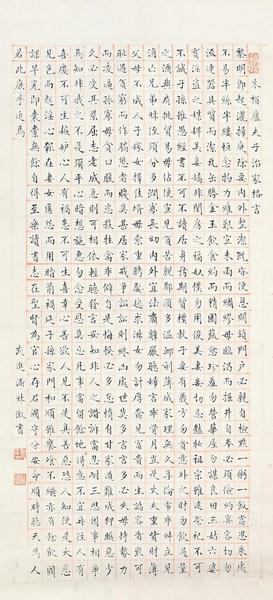 朱柏廬夫子治家格言
黎明即起灑掃庭除要內外整潔既昏便息關鎖門戶必親自檢點一粥一飯當思來處
不易半絲半縷恆念物力維艱宜未雨而綢繆毋臨渴而掘井自奉必須儉約宴客切勿
流連器具質而潔瓦缶勝金玉飲食約而精園蔬愈珍饈勿營華屋勿謀良田三姑六婆
實淫盜之媒婢美妾嬌非閨房之福奴僕勿用俊美妻妾切忌豔妝祖宗雖遠祭祀不可
不誠子孫雖愚經書不可不讀居身務期質樸教子要有義方勿貪意外之財勿飲過量
之酒與肩挑貿易毋佔便宜見貧苦親鄰須多溫卹刻薄成家理無久享倫常乖舛立見
消亡兄弟叔姪須分多潤寡長幼內外宜法肅辭嚴聽婦言乖骨肉豈是丈夫重貲財薄
父母不成人子嫁女擇佳婿毋索重聘娶媳求淑女勿計厚奩見富貴而生諂容者最可
恥遇貧窮而作驕態者賤莫甚居家戒爭訟訟則終凶處世戒多言言多必失毋恃勢力
而凌逼孤寡勿貪口腹而恣殺牲禽乖僻自是悔誤必多頹惰自甘家道難成狎昵惡少
久必受其累屈志老成急則可相依輕聽發言安知非人之譖訴當忍耐三思因事相爭
焉知非我之不是須平心暗想施惠勿念受恩莫忘凡事當留餘地得意不宜再往人有
喜慶不可生妬忌心人有禍患不可生喜幸心善欲人見不是真善惡恐人知便是大惡
見色而起淫心報在妻女匿怨而用暗箭禍延子孫家門和順雖饔飧不繼亦有餘歡國
課早完即囊橐無餘自得至樂讀書志在聖賢為官心存君國守分安命順時聽天為人
若此庶乎近焉
武進潘林書